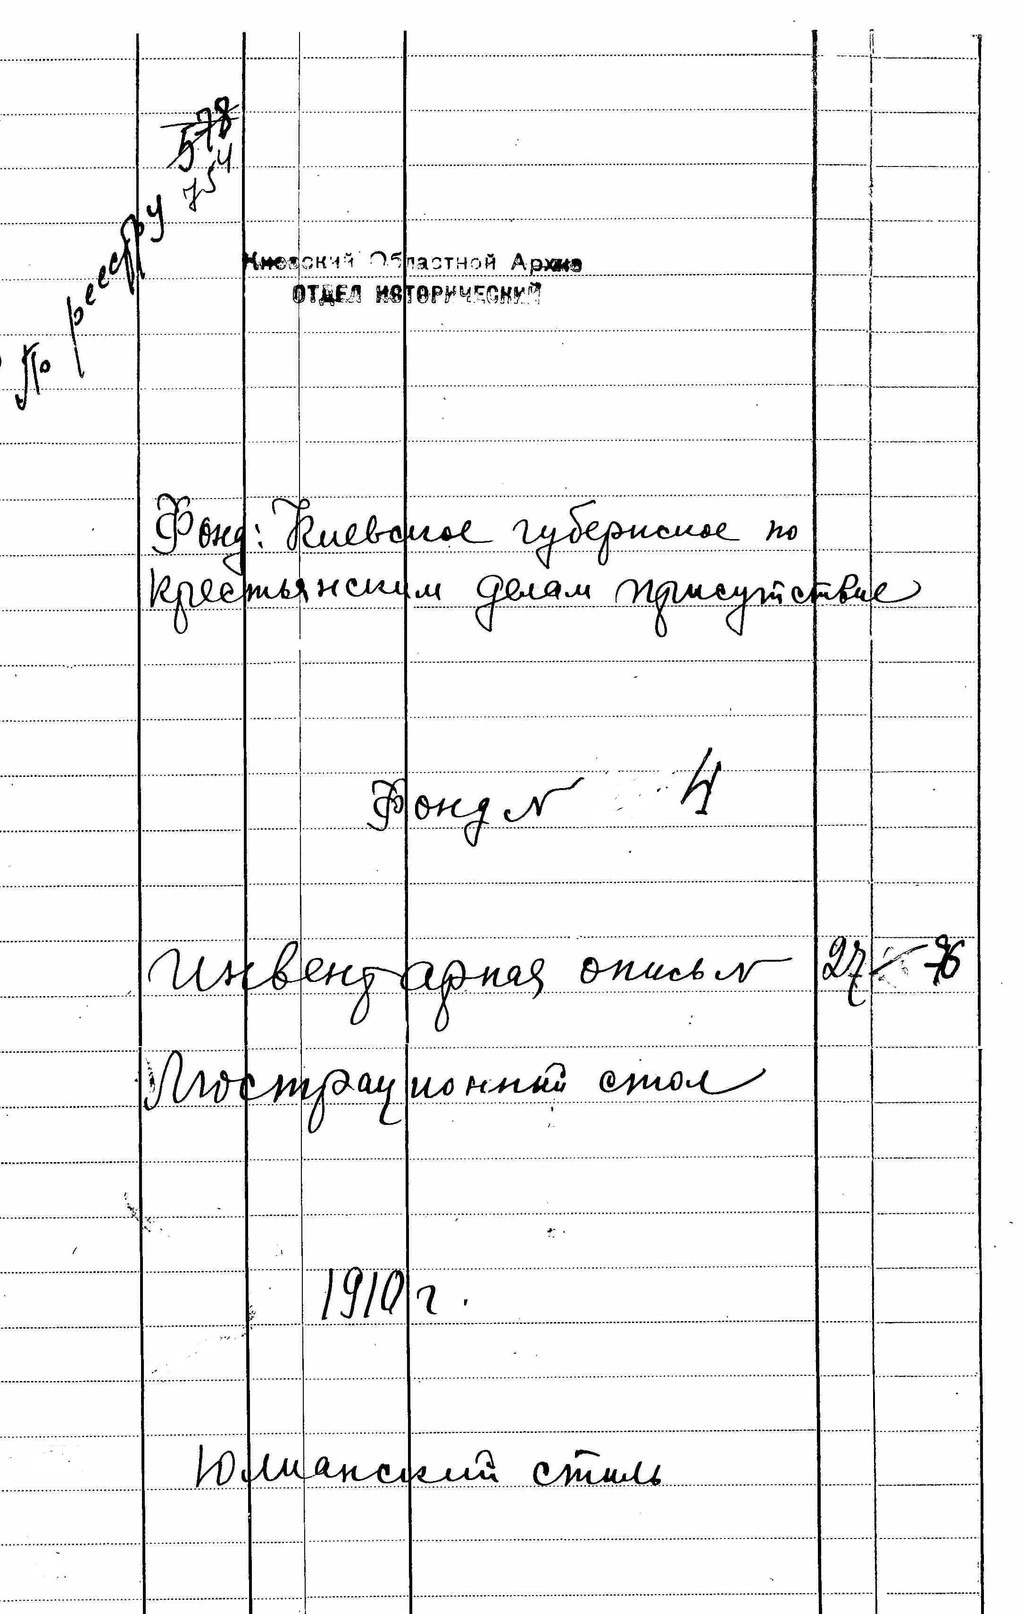 По реестру 578
754
Киевский Областной Архив
ОТДЕЛ ИСТОРИЧЕСКИЙ
Фонд: Киевское губернское по
крестьянским делам присутствие
Фонд № 4
Инвентарная опись № 27 76
Люстрационный стол
1910 г.
Юлианский стиль